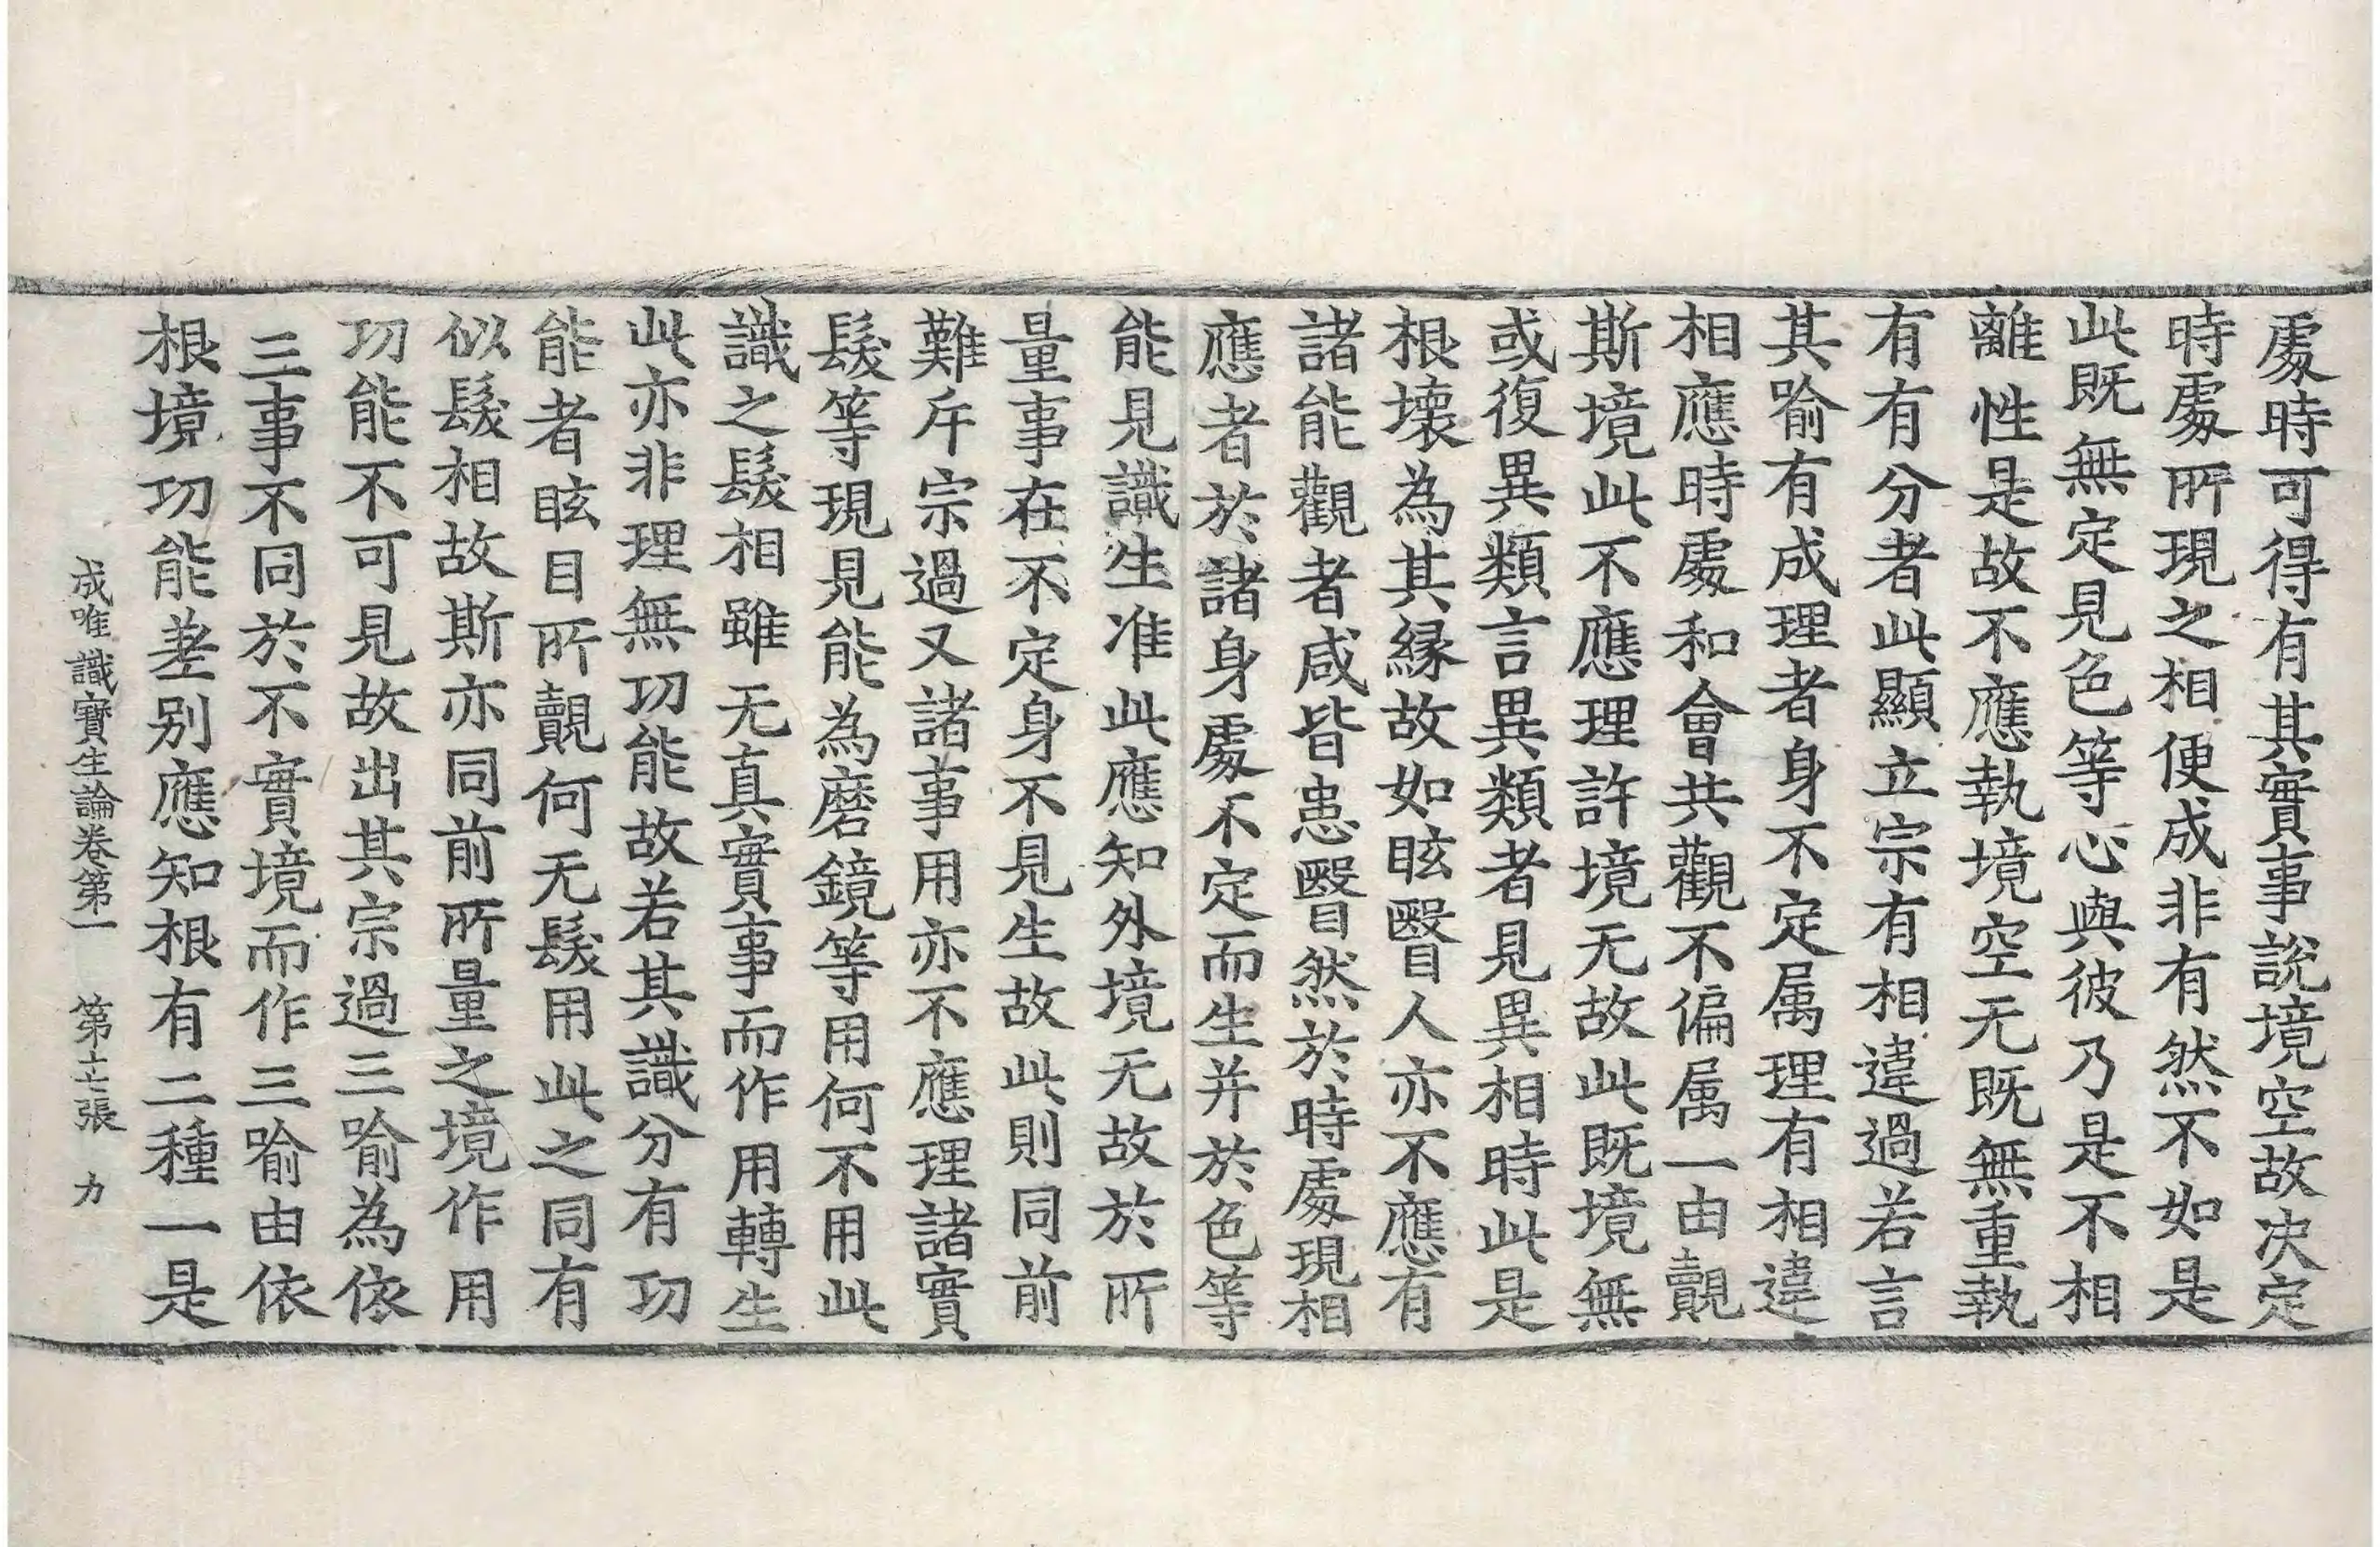 處時可得有其實事說境空故決定
時處所現之相便成非有然不如是
此既無定見色等心與彼乃是不相
離性是故不應執境空无既無重執
有有分者此顯立宗有相違過若言
其喻有成理者身不定属理有相違
相應時處和會共觀不偏属一由覩
斯境此不應理許境无故此既境無
或復異類言異類者見異相時此是
根壞為其縁故如眩瞖人亦不應有
諸能觀者咸皆患瞖然於時處現相
應者於諸身處不定而生并於色等
能見識生准此應知外境无故於所
量事在不定身不見生故此則同前
難斥宗過又諸事用亦不應理諸實
髮等現見能為磨鏡等用何不用此
識之髮相雖无真實事而作用轉生
此亦非理無功能故若其識分有功
能者眩目所覩何无髮用此之同有
似髮相故斯亦同前所量之境作用
功能不可見故出其宗過三喻為依
三事不同於不實境而作三喻由依
根境功能差别應知根有二種一是
成唯識寶生論卷第一　第十七張　力